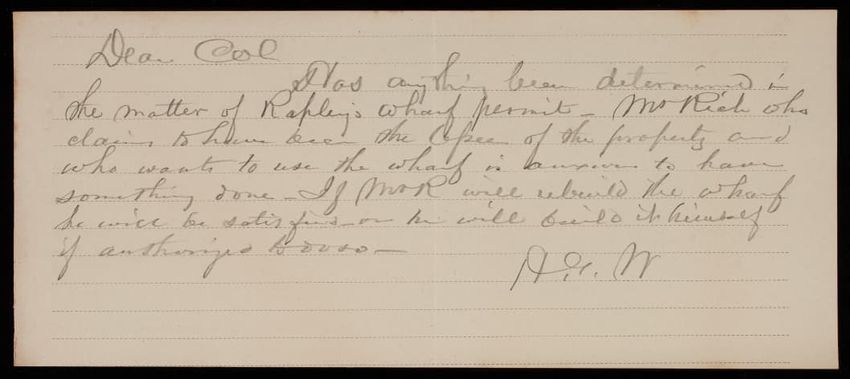 Dear Col
Has anything been determined in
the matter of Rapley's wharf permit - Mr Rich who
claims to have been the lessee of the property and
who wants to use the wharf is anxious to have
something done - If Mr R will rebuild the wharf
he will be satisfied - or he will build it himself
if authorized to do so -
H. G. W